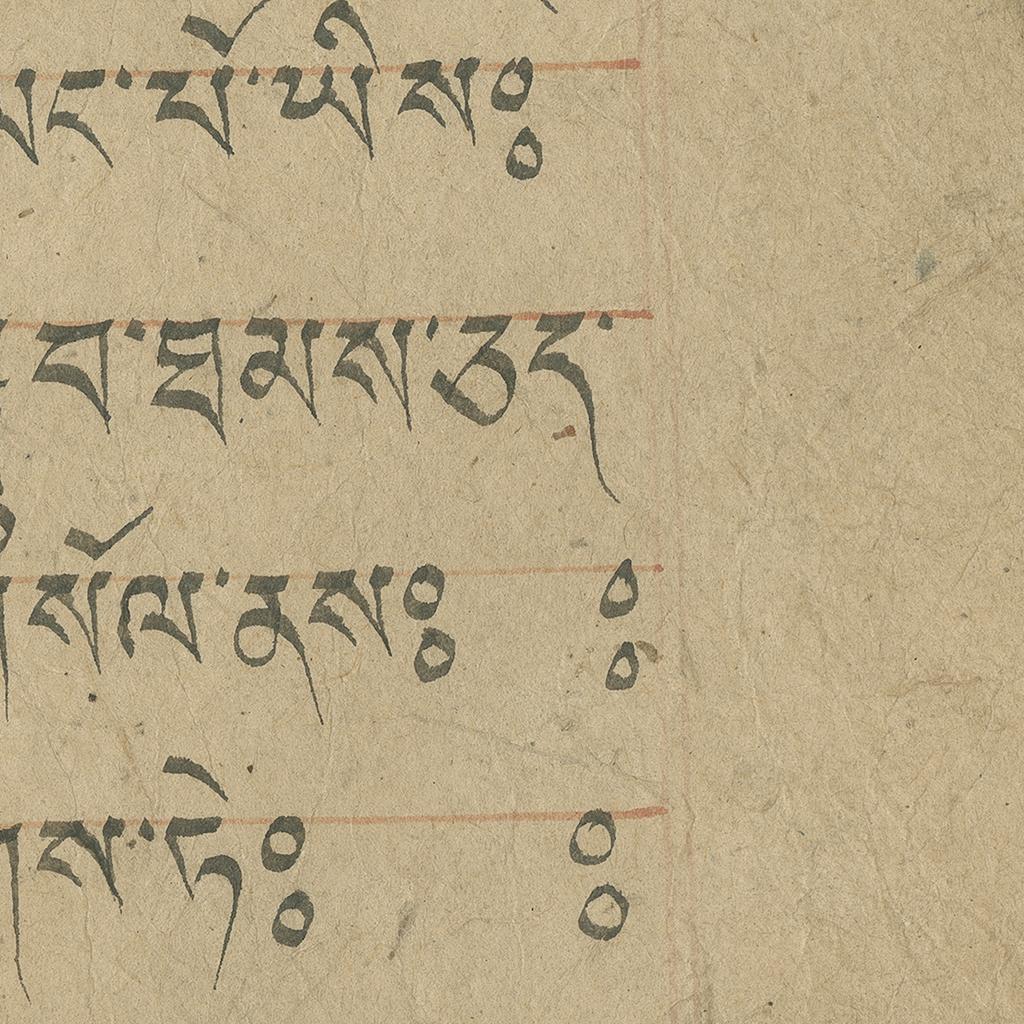 ང་པོ་ཡིས༔
བ་ཐམས་ཅད་
སོལ་ནས༔ ༔
ས་ཏེ༔ ༔